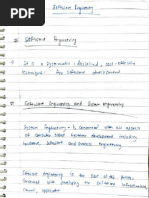 Software Engineering
Software Engineering
It is a systematic, disciplined, cost-effective
techniques for software development
Software Engineering and System engineering
System Engineering is concerned with all aspects
of computer based systems development including
hardware, software and process engineering.
Software engineering is the part of this process
concerned with developing the software infrastructure,
control, application